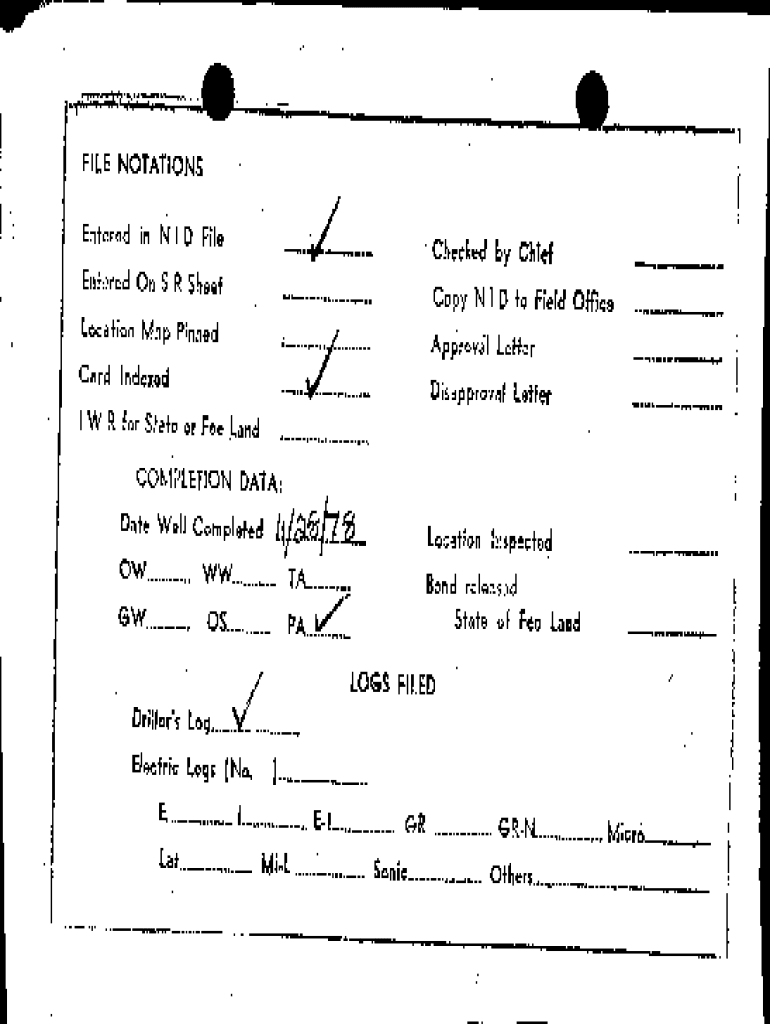 FILE NOTATIONS
Entered in N I D File ✓
Checked by Chief
Entered On S R Sheet
Copy N I D to Field Office
Location Map Pinned
Approval Letter
Card Indexed ✓
Disapproval Letter
I W R for State or Fee Land
COMPLETION DATA:
Date Well Completed 11/28/78
Location Inspected
OW WW TA
Bond released
GW OS PA ✓
State of Fee Land
LOGS FILED
Driller's Log ✓
Electric Logs (No. )
E I E-I GR GR-N Micro
Lat Mi-L Sonic Others